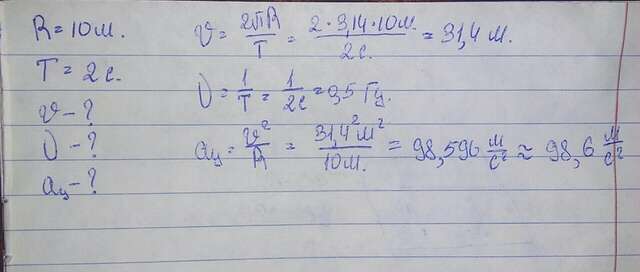 R = 10м.
T = 2с.
υ - ?
ν - ?
aц - ?
υ = 2πR/T = 2·3,14·10м/2с. = 31,4 м.
ν = 1/T = 1/2с = 0,5 Гц.
aц = υ²/R = 31,4² м²/10м. = 98,596 м/с² ≈ 98,6 м/с²